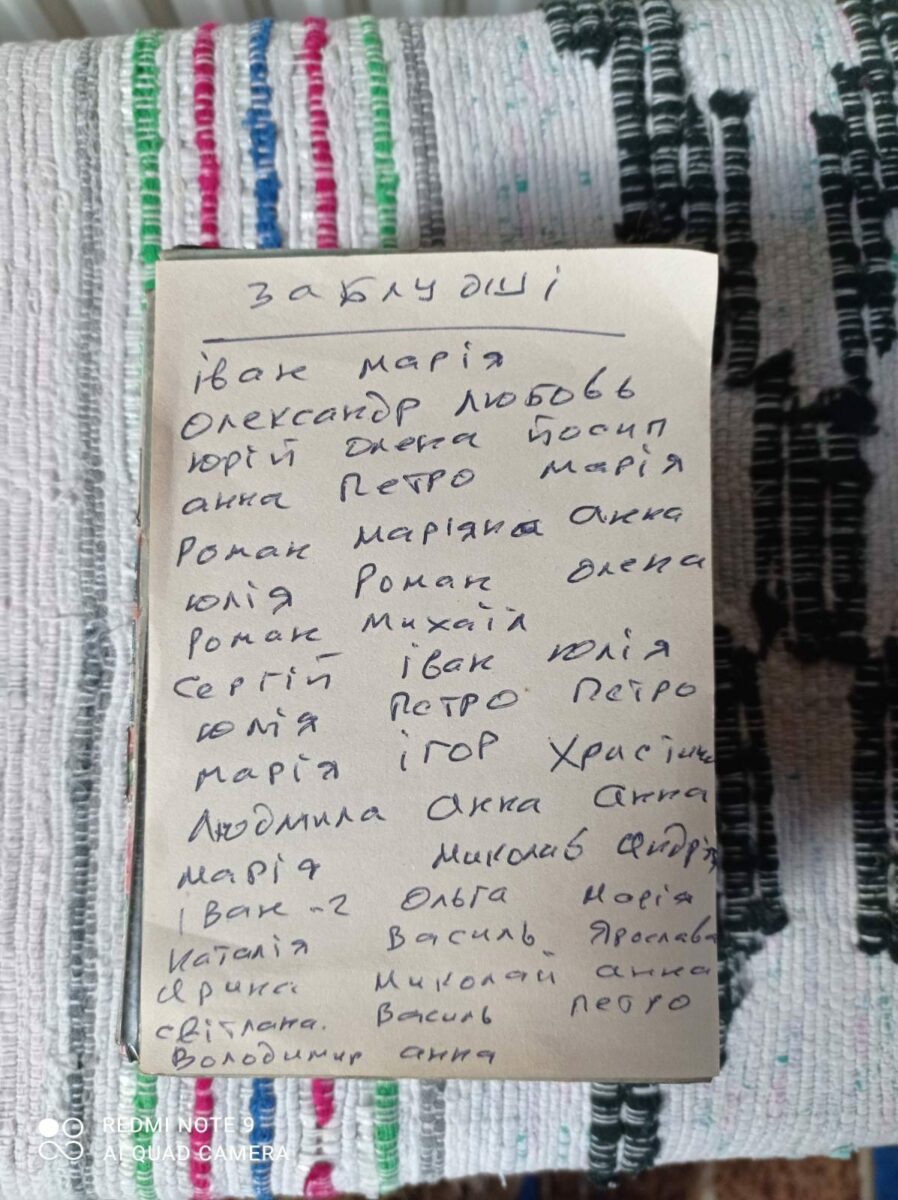 за блудші
іван марія
олександр любовь
юрій олена йосип
анна петро марія
роман маріяна анна
юлія роман олена
роман михаіл
сергій іван юлія
юлія петро петро
марія ігор
людмила анна анна
марія андрія
іван-2 ольга марія
наталія василь ярослава
ярина миколай анна
світлана. василь петро
володимир анна
REDMI NOTE 9
AI QUAD CAMERA